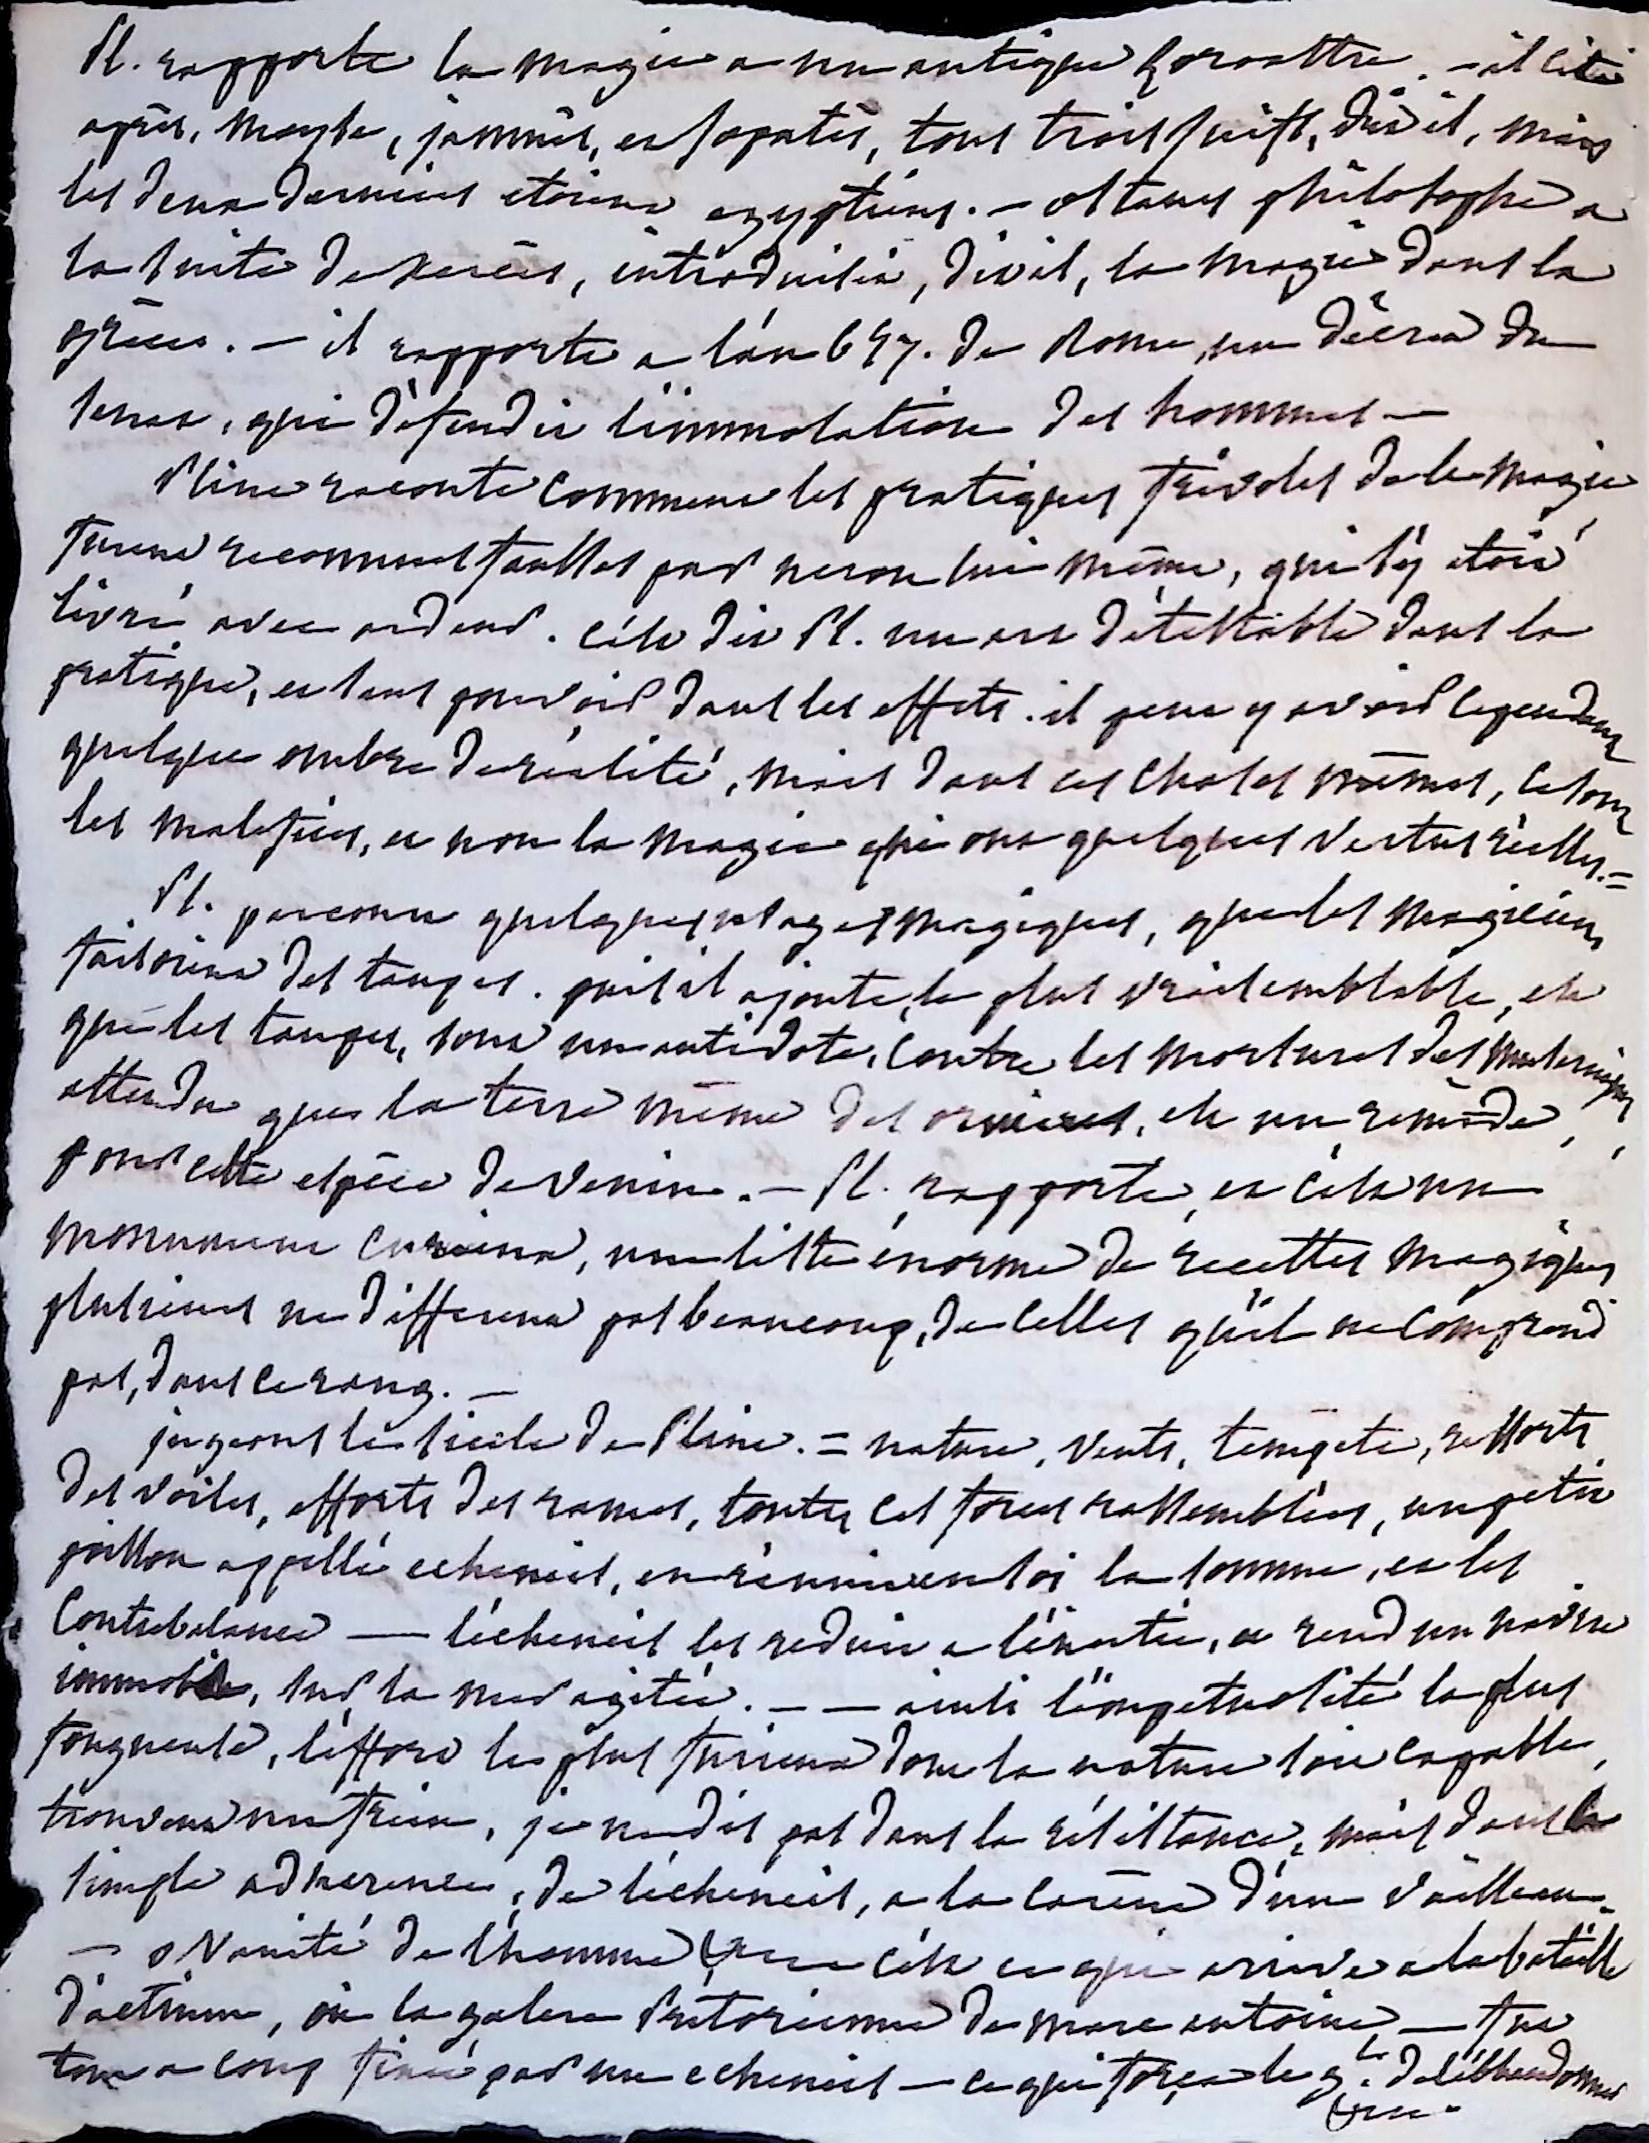 Pl. rapporte la magie a un antique Zoroastre. – il cite
après, Moyse, jamnès, et jopatès, tous trois juifs, dit il, mais
les deux derniers etoient egyptiens. – ostanes philosophe a
la suite de xerces, introduisit, dit il, la magie dans la
grece. – il rapporte a l'an 657. de Rome, un décret du
senat, qui défendit l'immolation des hommes –
Pline raconte comment les pratiques frivoles de la magie
furent reconnues fausses par neron lui même, qui s'y étoit
livré avec ardeur. c'est dit Pl. un art détestable dans la
pratique, et sans pouvoir dans les effets. il peut y avoir cependant
quelque ombre de réalité, mais dans ces choses mêmes, ce sont
les malefices, et non la magie qui ont quelques vertus réelles. =
Pl. parcourt quelques usages magiques, que les magiciens
faisoient des taupes. puis il ajoute, le plus vraisemblable, est
que les taupes, sont un antidote, contre les morsures des musaraignes,
attendu que la terre même des ornieres, est un remède,
pour cette espèce de venin. – Pl. rapporte, et c'est un
monument curieux, une liste énorme de recettes magiques
plusieurs ne different pas beaucoup, de celles qu'il ne comprend
pas, dans ce rang. –
jugeons le siecle de Pline. = nature, vents, tempête, ressorts
des voiles, efforts des rames, toutes ces forces rassemblées, un petit
poisson appellé echeneis, en réunit en soi la somme, et les
contrebalance — l'écheneis les reduit a l'inertie, et rend un navire
immobile, sur la mer agitée. – — ainsi l'impetuosité la plus
fougueuse, l'effort le plus furieux dont la nature soit capable,
trouvent un frein, je ne dis pas dans la résistance, mais dans la
simple adherence, de l'écheneis, a la carène d'un vaisseau. –
– o vanité de l'homme &c — c'est ce qui arriva a la bataille
d'actium, où la galere Pretorienne de marc antoine, — fut
tout a coup fixée par un echeneis — ce qui força le g.al de l'abandonner
&c.